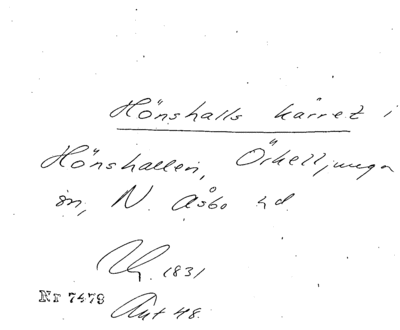 Hönshalls kärret i
Hönshallen, Örkelljunga
sn, N. Åsbo hd.
1831
Nr 7479
Ant 48.